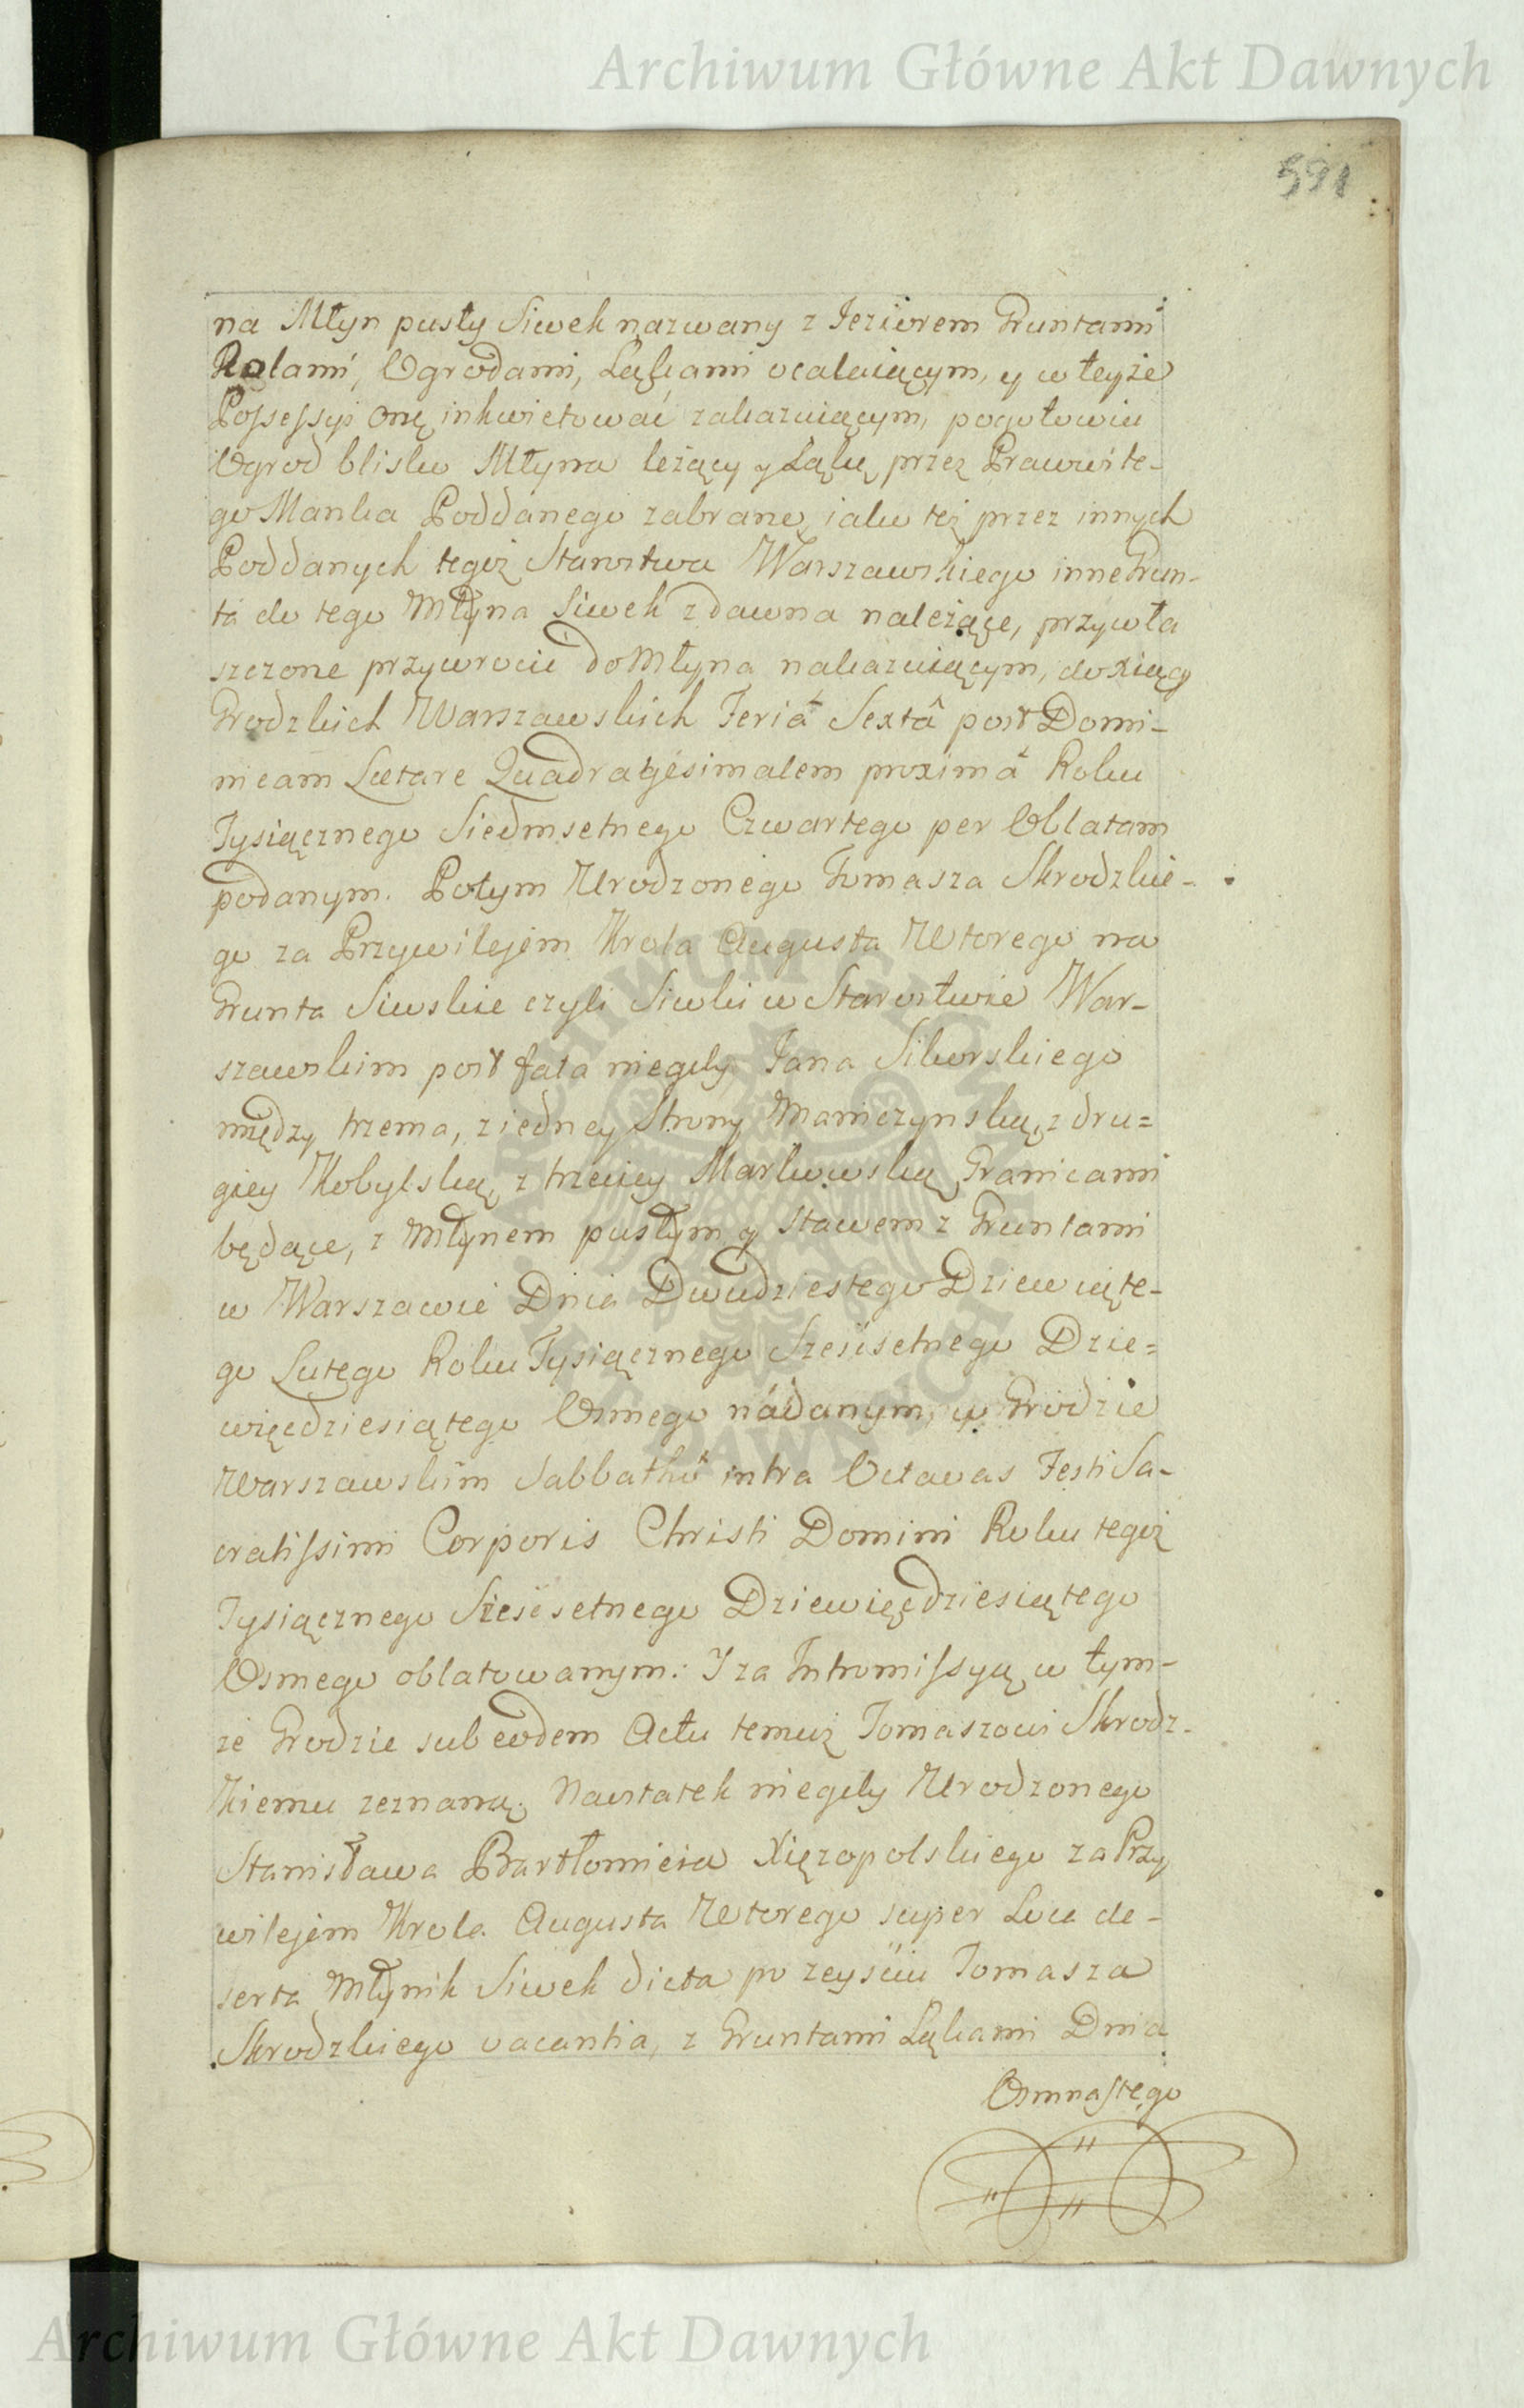 Archiwum Główne Akt Dawnych
591
na Młyn pusty Siwek nazwany z Jeziorem Gruntami
Rolami, Ogrodami, Łąkami ocalaiącym, y w teyże
Possessyi onę inkwietować zakazuiącym, pogotowiu
Ogrod blisko Młyna leżący y Łąkę przez Pracowite-
go Manka Poddanego zabrane, iako też przez innych
Poddanych tegoż Starostwa Warszawskiego inne Grun-
ta do tego Młyna Siwek zdawna należące, przywła
szczone przywrocić do Młyna nakazuiącym, do Xiąg
Grodzkich Warszawskich Feriâ Sextâ post Domi-
nicam Lætare Quadragesimalem proximâ Roku
Tysiącznego Siedmsetnego Czwartego per Oblatam
podanym. Potym Urodzonego Tomasza Skrodzkie-
go za Przywilejem Krola Augusta Wtorego na
Grunta Siwskie czyli Siwki w Starostwie War-
szawskim post fata niegdy Jana Sikorskiego
między trzema, z iedney Strony Maniczynską, z dru=
giey Kobylską, z trzeciey Markowską Granicami
będące, z Młynem pustym y Stawem z Gruntami
w Warszawie Dnia Dwudziestego Dziewiąte-
go Lutego Roku Tysiącznego Sześćsetnego Dzie=
więćdziesiątego Osmego nádanym, w Grodzie
Warszawskim Sabbathô intra Octavas Festi Sa-
cratissimi Corporis Christi Domini Roku tegoż
Tysiącznego Sześćsetnego Dziewięćdziesiątego
Osmego oblatowanym: I za Intromissyą w tym-
że Grodzie sub eodem Actu temuż Tomaszowi Skrodz-
kiemu zeznaną. Naostatek niegdy Urodzonego
Stanisława Bartłomieia Xięzopolskiego za Przy
wilejem Krola Augusta Wtorego super Loca de-
serta Młynik Siwek dicta po zeyściu Tomasza
Skrodzkiego vacantia, z Gruntami Łąkami Dnia
Osmnastego
ARCHIWUM GŁÓWNE AKT DAWNYCH
Archiwum Główne Akt Dawnych